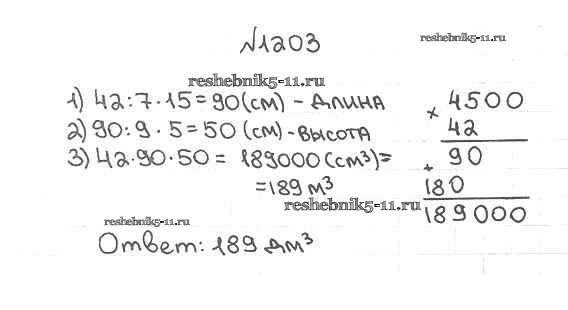 №1203
reshebnik5-11.ru
reshebnik5-11.ru
1) 42:7·15=90(см) - ДЛИНА
2) 90:9·5=50 (см) - ВЫСОТА
3) 42·90·50 = 189000 (см³)=
=189 м³
reshebnik5-11.ru
× 4500
42
+ 90
180
189000
reshebnik5-11.ru
Ответ: 189 дм³